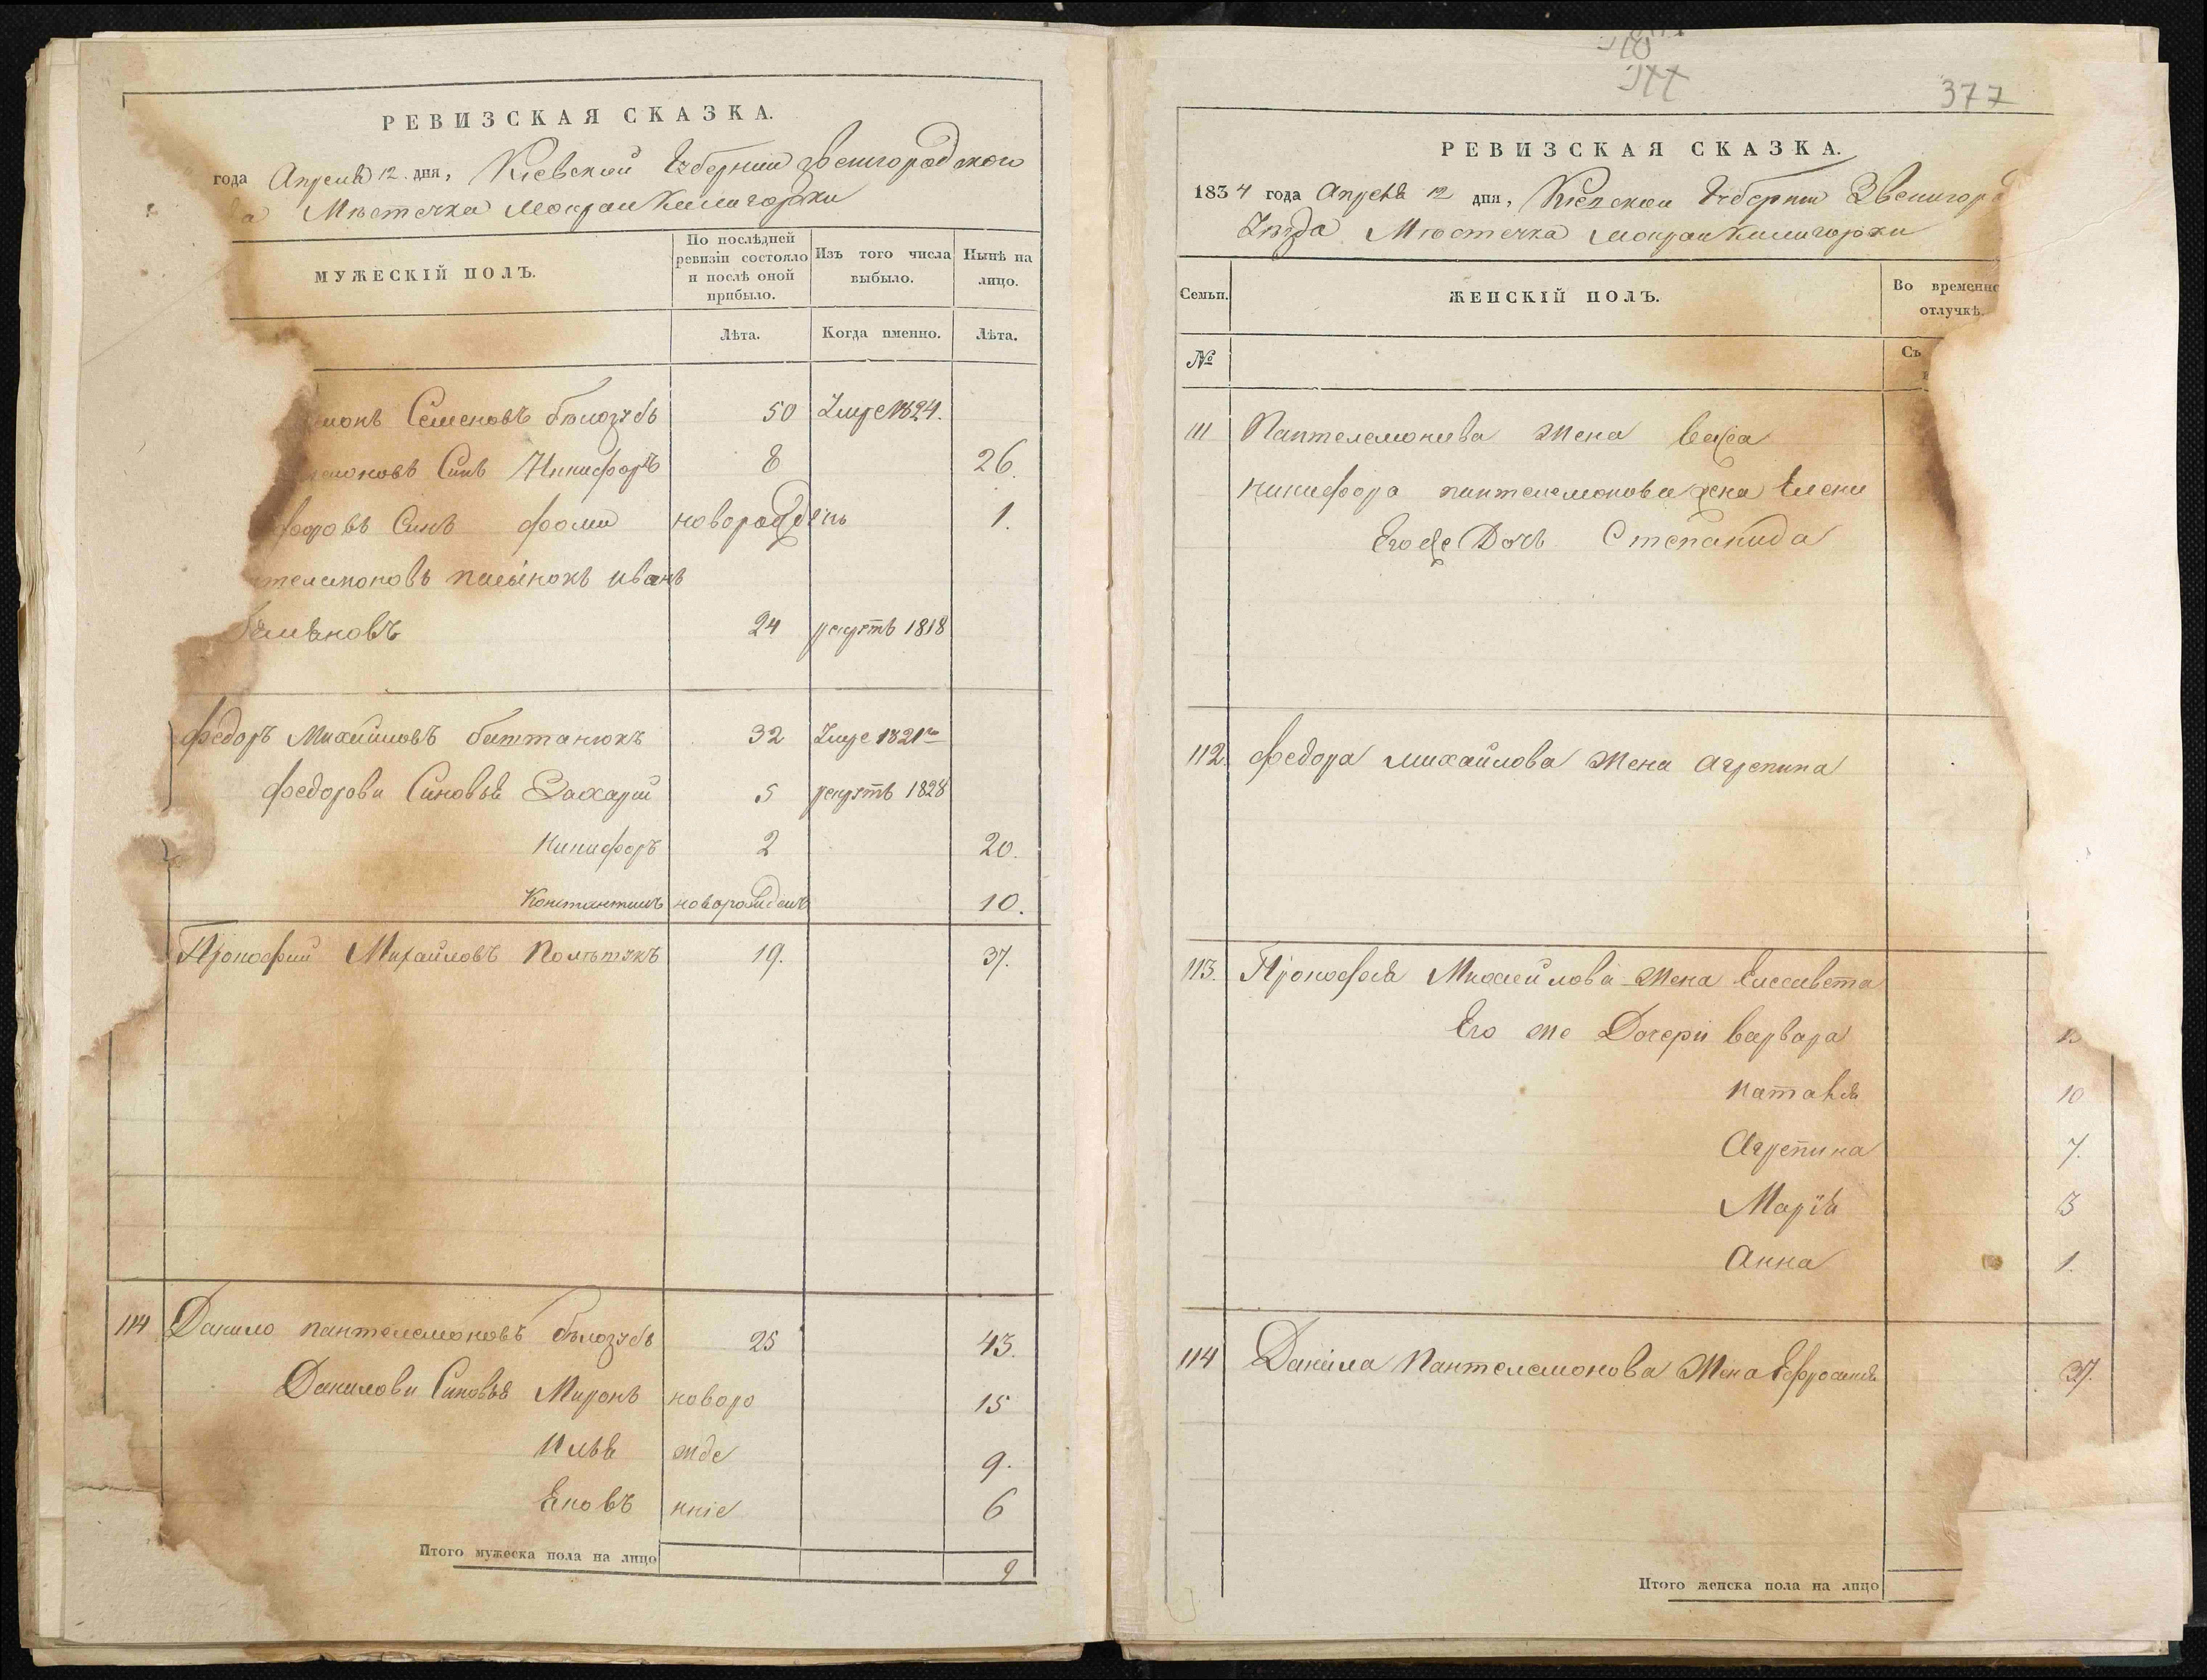 РЕВИЗСКАЯ СКАЗКА.
года Апреля 12 дня, Кіевской Губернии Звенигородской
да Мѣстечка Мокрой Калигорки
МУЖЕСКІЙ ПОЛЪ.
По послѣдней ревизіи состояло и послѣ оной прибыло.
Изъ того числа выбыло.
Нынѣ на лицо.
Лѣта.
Когда именно.
Лѣта.
монъ Семеновъ бѣлозубъ 50 Умре 1824.
емоновъ Синъ Никифоръ 8 26.
форовъ Синъ фома новорожденъ 1.
телемоновъ пасынокъ иванъ
24 рекрутъ 1818
федоръ Михайловъ 32 Умре 1821го
федорови Синовья Захарий 5 рекрутъ 1828
Никифоръ 2 20.
Константинъ новорожденъ 10.
Прокофий Михайловъ 19. 37.
114 Данило пантелемоновъ бѣлозубъ 25 43.
Данилови Синовья Миронъ новоро 15
Илья жде 9.
Яковъ нніе 6
Итого мужеска пола на лицо 9
377
377
РЕВИЗСКАЯ СКАЗКА.
1834 года Апреля 12 дня, Кіевской Губернии Звенигоро
Уѣзда Мѣстечка Мокрой Калигорки
Семьи.
ЖЕНСКІЙ ПОЛЪ.
Во временно
отлучкѣ.
№
Съ
111 Пантелемонова жена
Никифора пантелемонова жена Елена
Его же Дочь Степанида
112. федора михайлова жена Агрепина
113. Прокофья Михайлова жена Елесавета
Его же Дочери варвара
Наталья 10
Агрепина 7.
Марія 3
Анна 1.
114 Данила Пантелемонова жена Ефросинья 37.
Итого женска пола на лицо